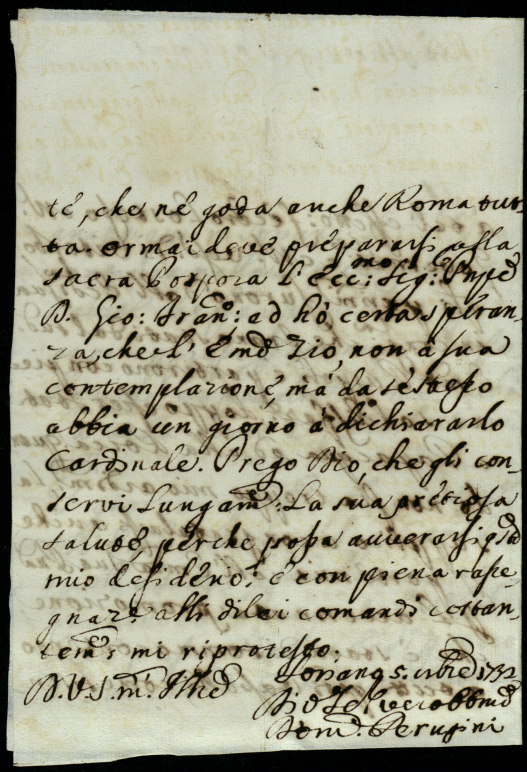 te, che ne goda anche Roma tut-
ta. ormai deve prepararsi alla
sacra Porpora l'Ecc:mo Sig:
D. Gio: Fran:o: ed hò certa speran-
za, che l' Emo Zio, non à sua
contemplazione, mà da se stesso
abbia un giorno à dichiararlo
Cardinale. Prego Dio, che gli con-
servi Lungam: La sua pretiosa
salute perche possa avverarsi
mio desiderio; e con piena rasse-
gnaz: alli di lei comandi costan-
tem: mi riprotesto.
5. 1732
D. V. S. m: Ill
Dio Se
Dom. Perugini